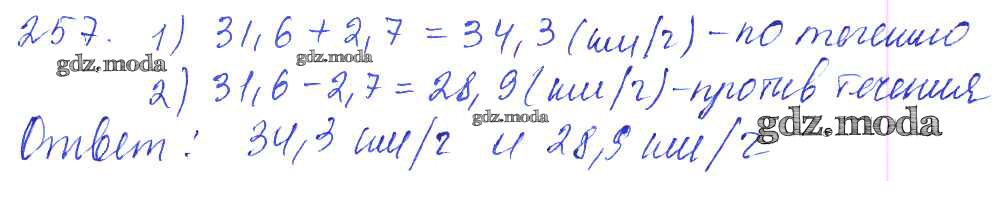 257. 1) 31,6 + 2,7 = 34,3 (км/ч) - по течению
gdz.moda gdz.moda
2) 31,6 - 2,7 = 28,9 (км/ч) - против течения
gdz.moda gdz.moda
Ответ: 34,3 км/ч и 28,9 км/ч